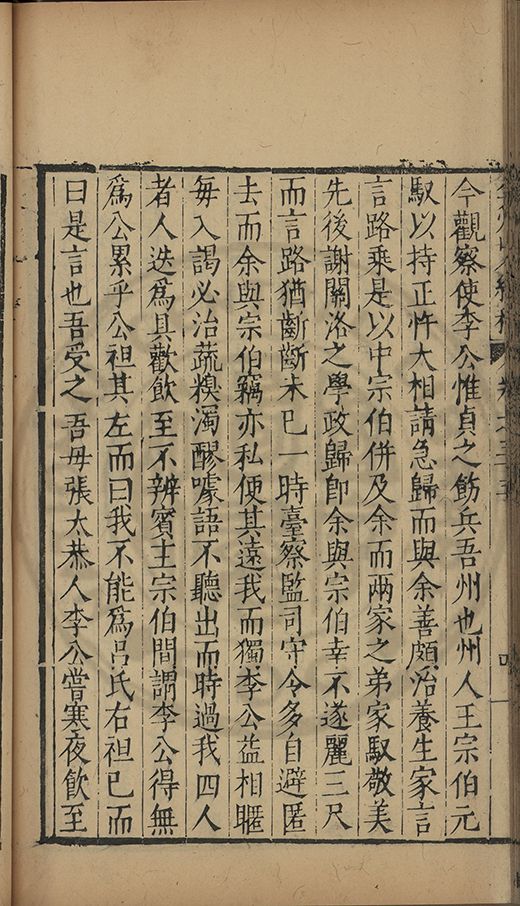 今觀察使李公惟貞之飭兵吾州也州人王宗伯元
馭以持正忤大相請急歸而與余善頗治養生家言
言路乘是以中宗伯併及余而兩家之弟家馭敬美
先後謝關洛之學政歸即余與宗伯幸不遂麗三尺
而言路猶齗齗未巳一時臺察監司守令多自避匿
去而余與宗伯竊亦私便其遠我而獨李公益相暱
每入謁必治蔬糗濁醪噱語不聽出而時過我四人
者人迭爲具歡飲至不辨賓主宗伯間謂李公得無
爲公累乎公袒其左而曰我不能爲呂氏右袒巳而
曰是言也吾受之吾母張太恭人李公嘗寒夜飲至